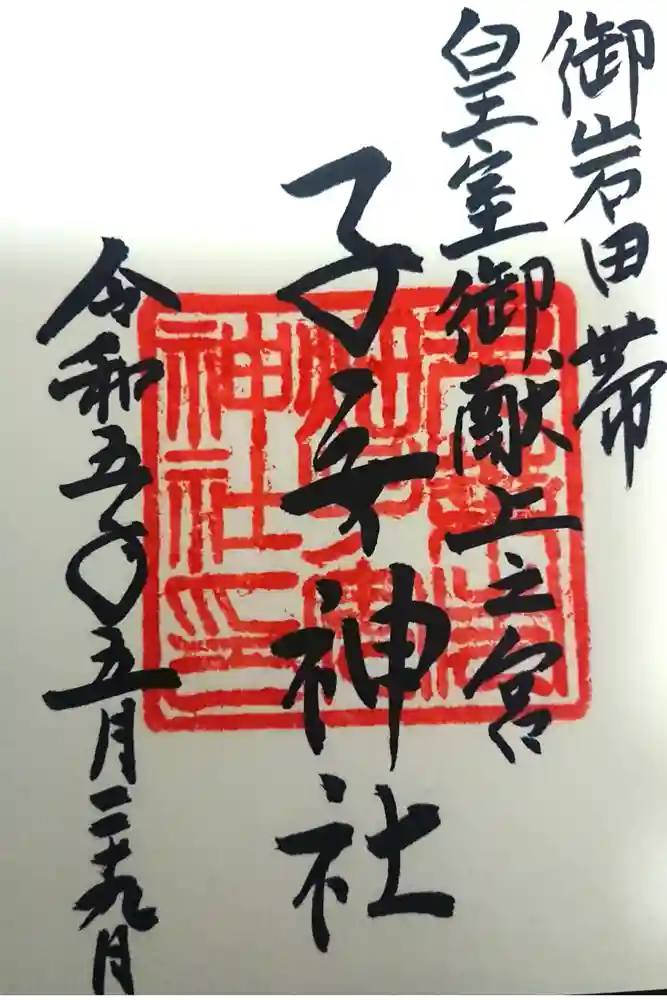 御岩田帯
皇室御献上之宮
子安神社
令和五年五月二十九日
神社之印